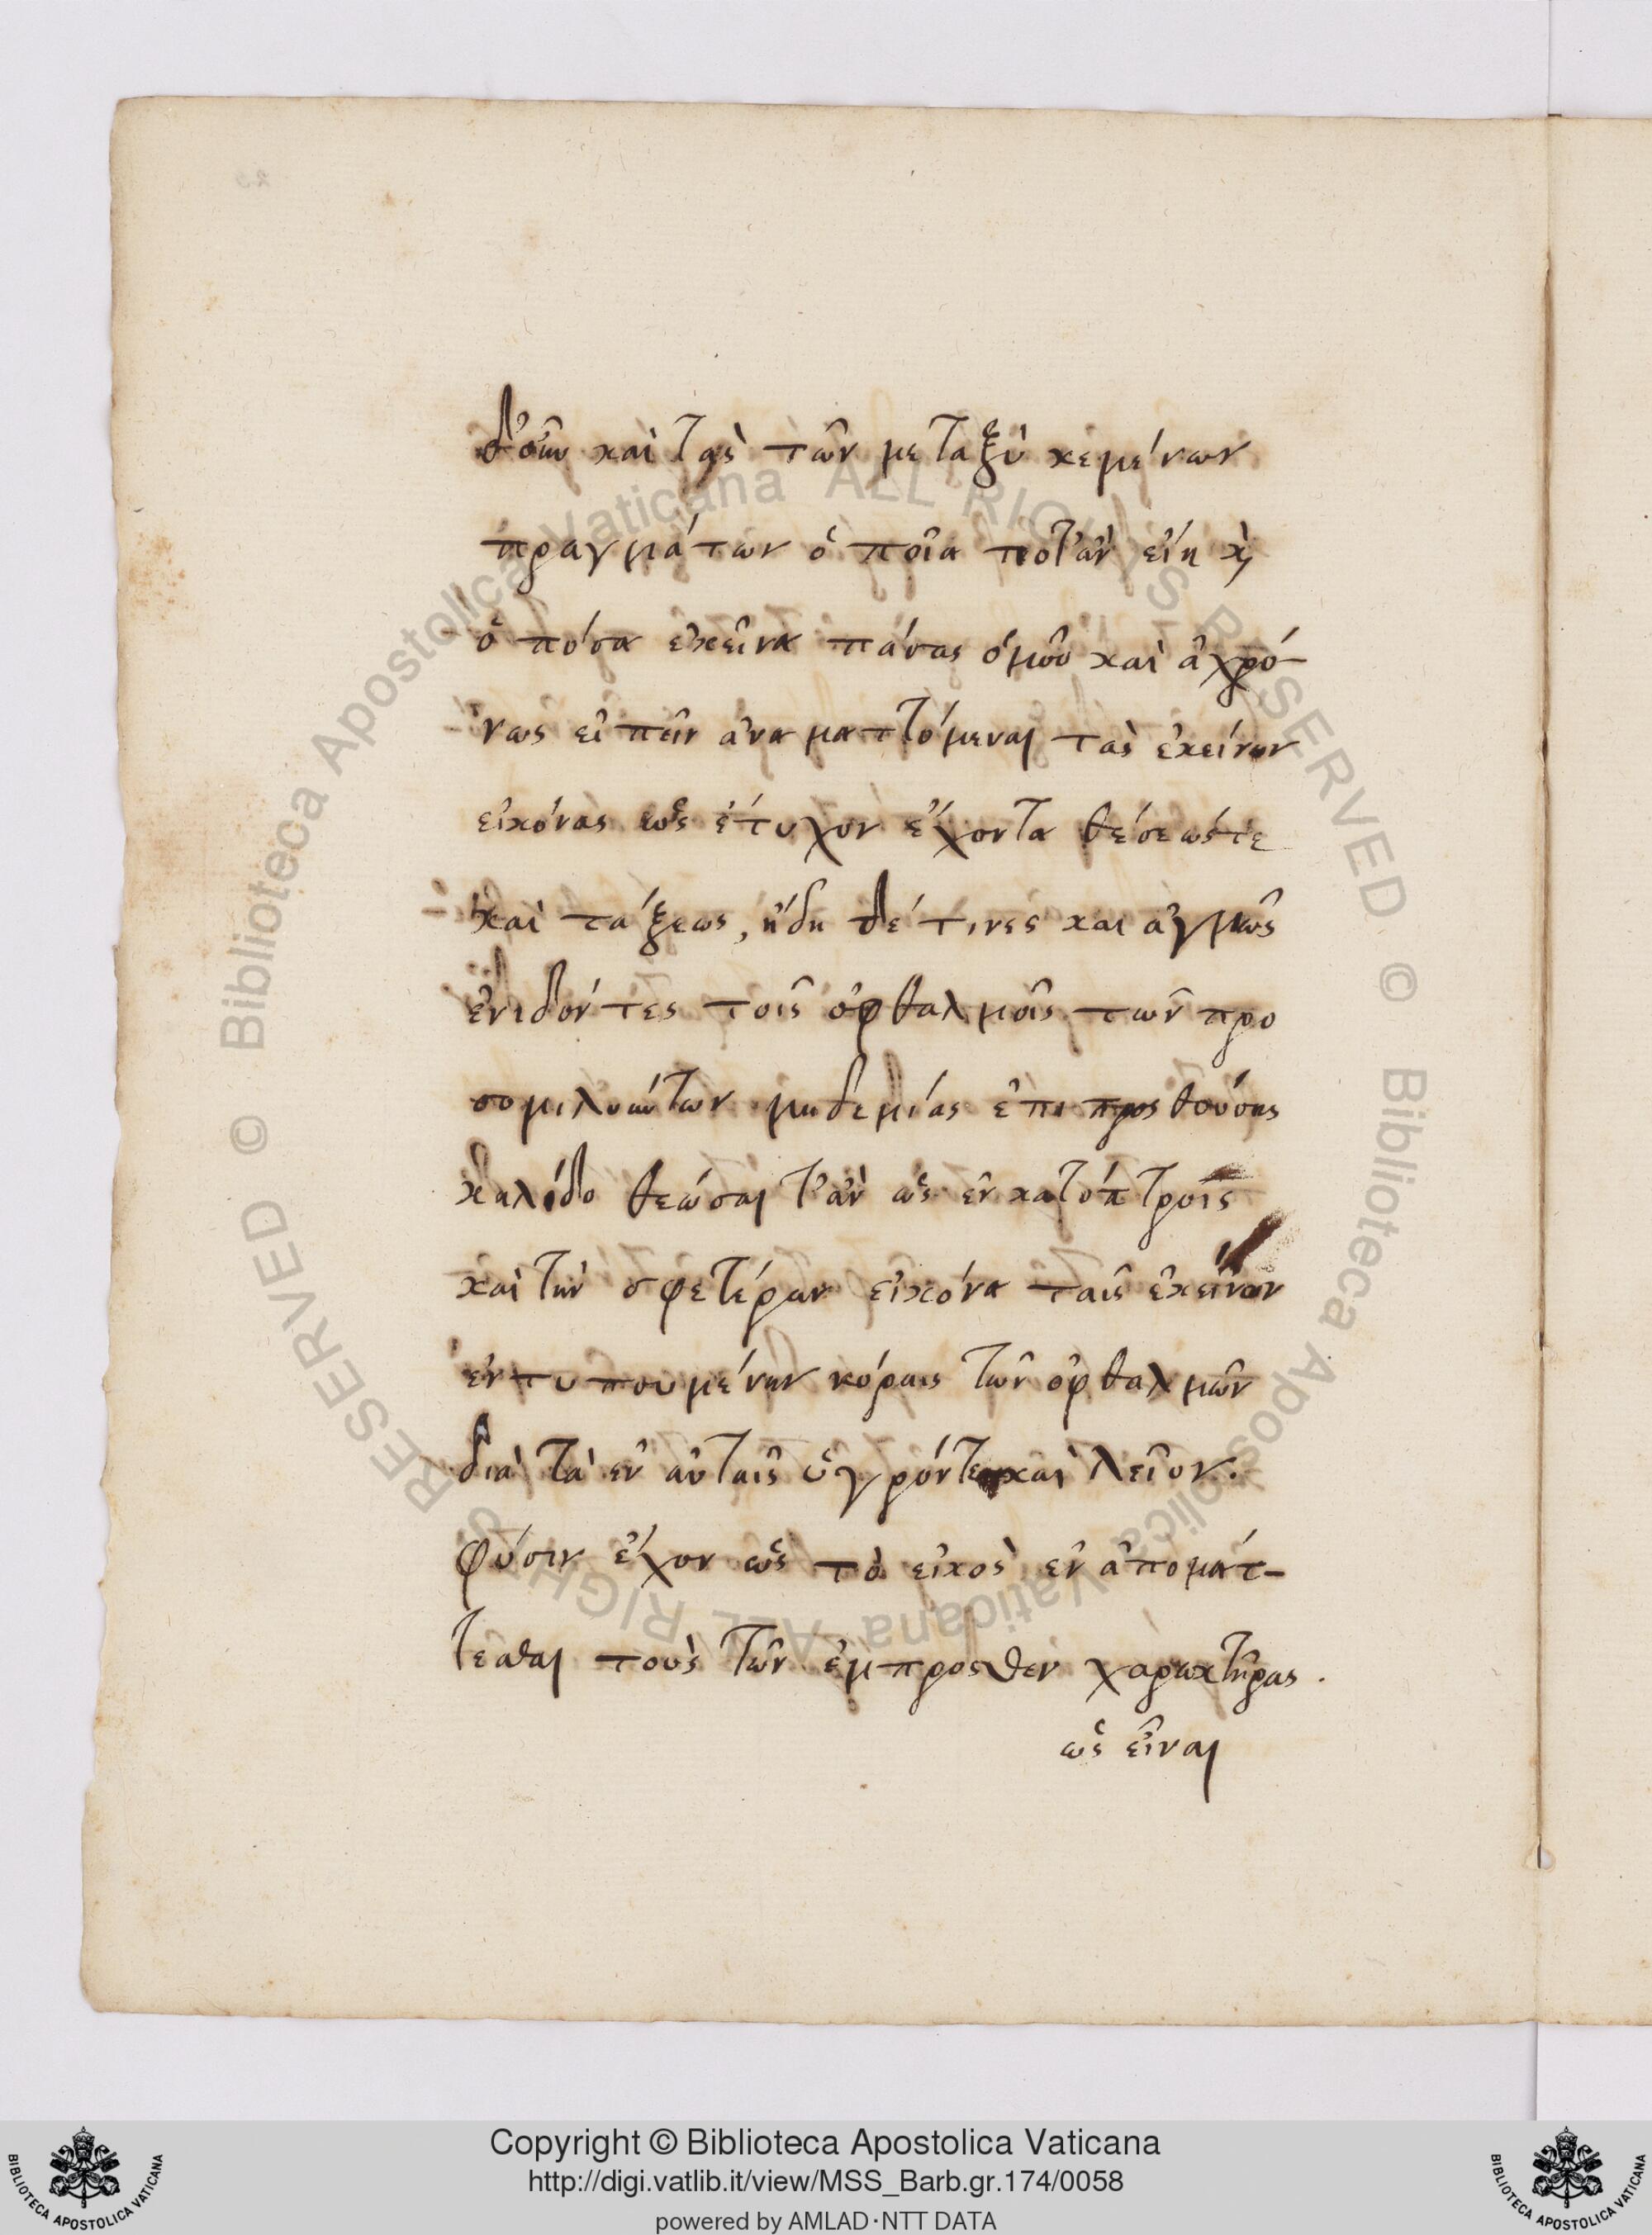 δ' οὖν καὶ τὰς τῶν μεταξὺ κειμένων
πραγμάτων ὁποῖα ποτ' ἂν εἴη κ̀
ὁπόσα ἐκεῖνα πάσας ὁμοῦ καὶ ἀχρό-
νως εἰπεῖν ἀναματτόμεναι τὰς ἐκείνων
εἰκόνας ὡς ἔτυχον ἔχοντα θέσεώς τε
καὶ τάξεως, ἤδη δέ τινες καὶ
ἐνιδόντες τοῖς ὀφθαλμοῖς τῶν προ
σομιλούντων μηδεμίας ἐπιπροσθούσης
θεῶσαι τ' ἂν ὡς ἐν κατόπτροις
καὶ τὴν σφετέραν εἰκόνα ταῖς ἐκείνων
ἐντυπουμένην κόραις τῶν ὀφθαλμῶν
διὰ τὰ ἐν αὐταῖς ὑγρόν τε καὶ λεῖον.
φύσιν ἔχον ὡς τὸ εἰκὸς ἐν ἀπομάτ-
τεσθαι τοὺς τῶν ἔμπροσθεν χαρακτῆρας.
ὡς εἶναι
Copyright © Biblioteca Apostolica Vaticana
http://digi.vatlib.it/view/MSS_Barb.gr.174/0058
powered by AMLAD·NTT DATA
BIBLIOTECA APOSTOLICA VATICANA
BIBLIOTECA APOSTOLICA VATICANA
© Biblioteca Apostolica Vaticana ALL RIGHTS RESERVED © Biblioteca Apostolica Vaticana ALL RIGHTS RESERVED